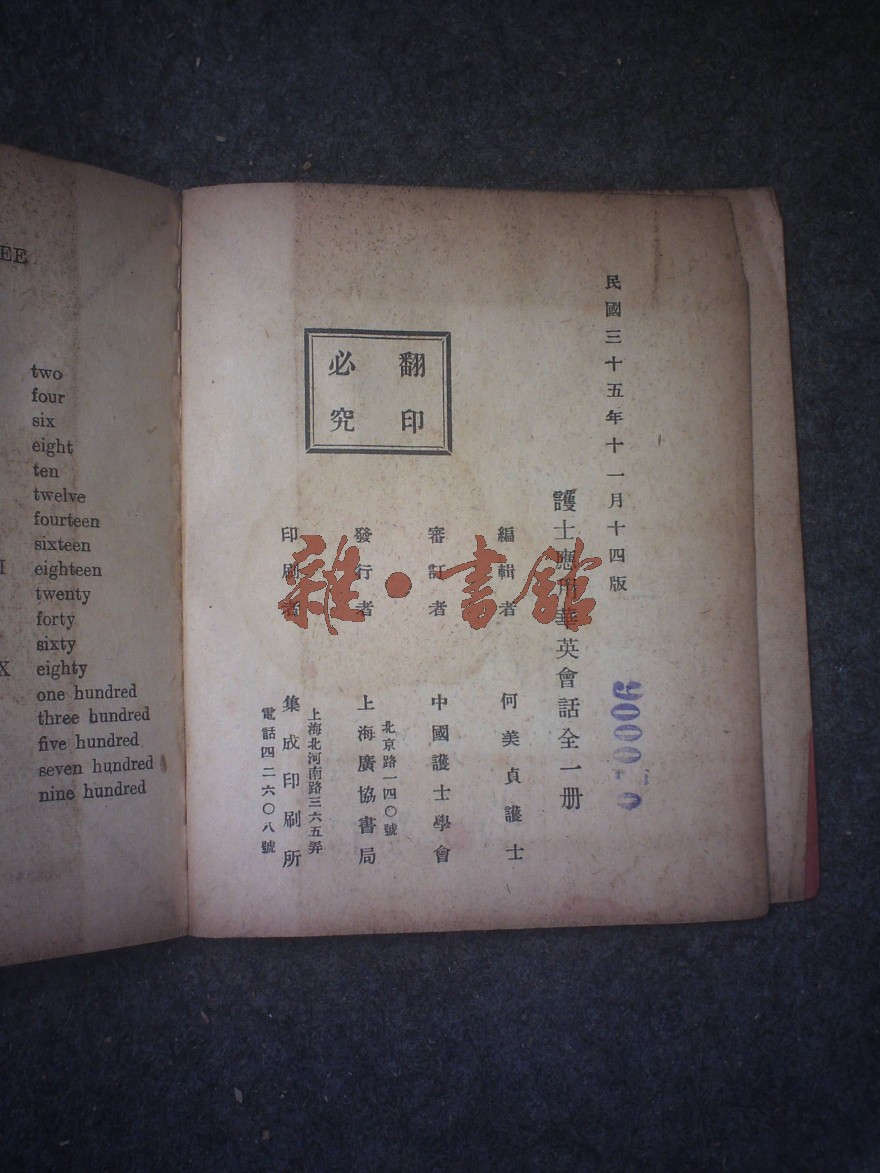 EE
two
four
six
eight
ten
twelve
fourteen
sixteen
I eighteen
twenty
forty
sixty
X eighty
one hundred
three hundred
five hundred
seven hundred
nine hundred
民國三十五年十一月十四版
護士應用華英會話全一册
翻印
必究
編輯者 何美貞護士
審訂者 中國護士學會
北京路一四〇號
發行者 上海廣協書局
上海北河南路三六五弄
印刷者 集成印刷所
電話四二六〇八號
雜·書館